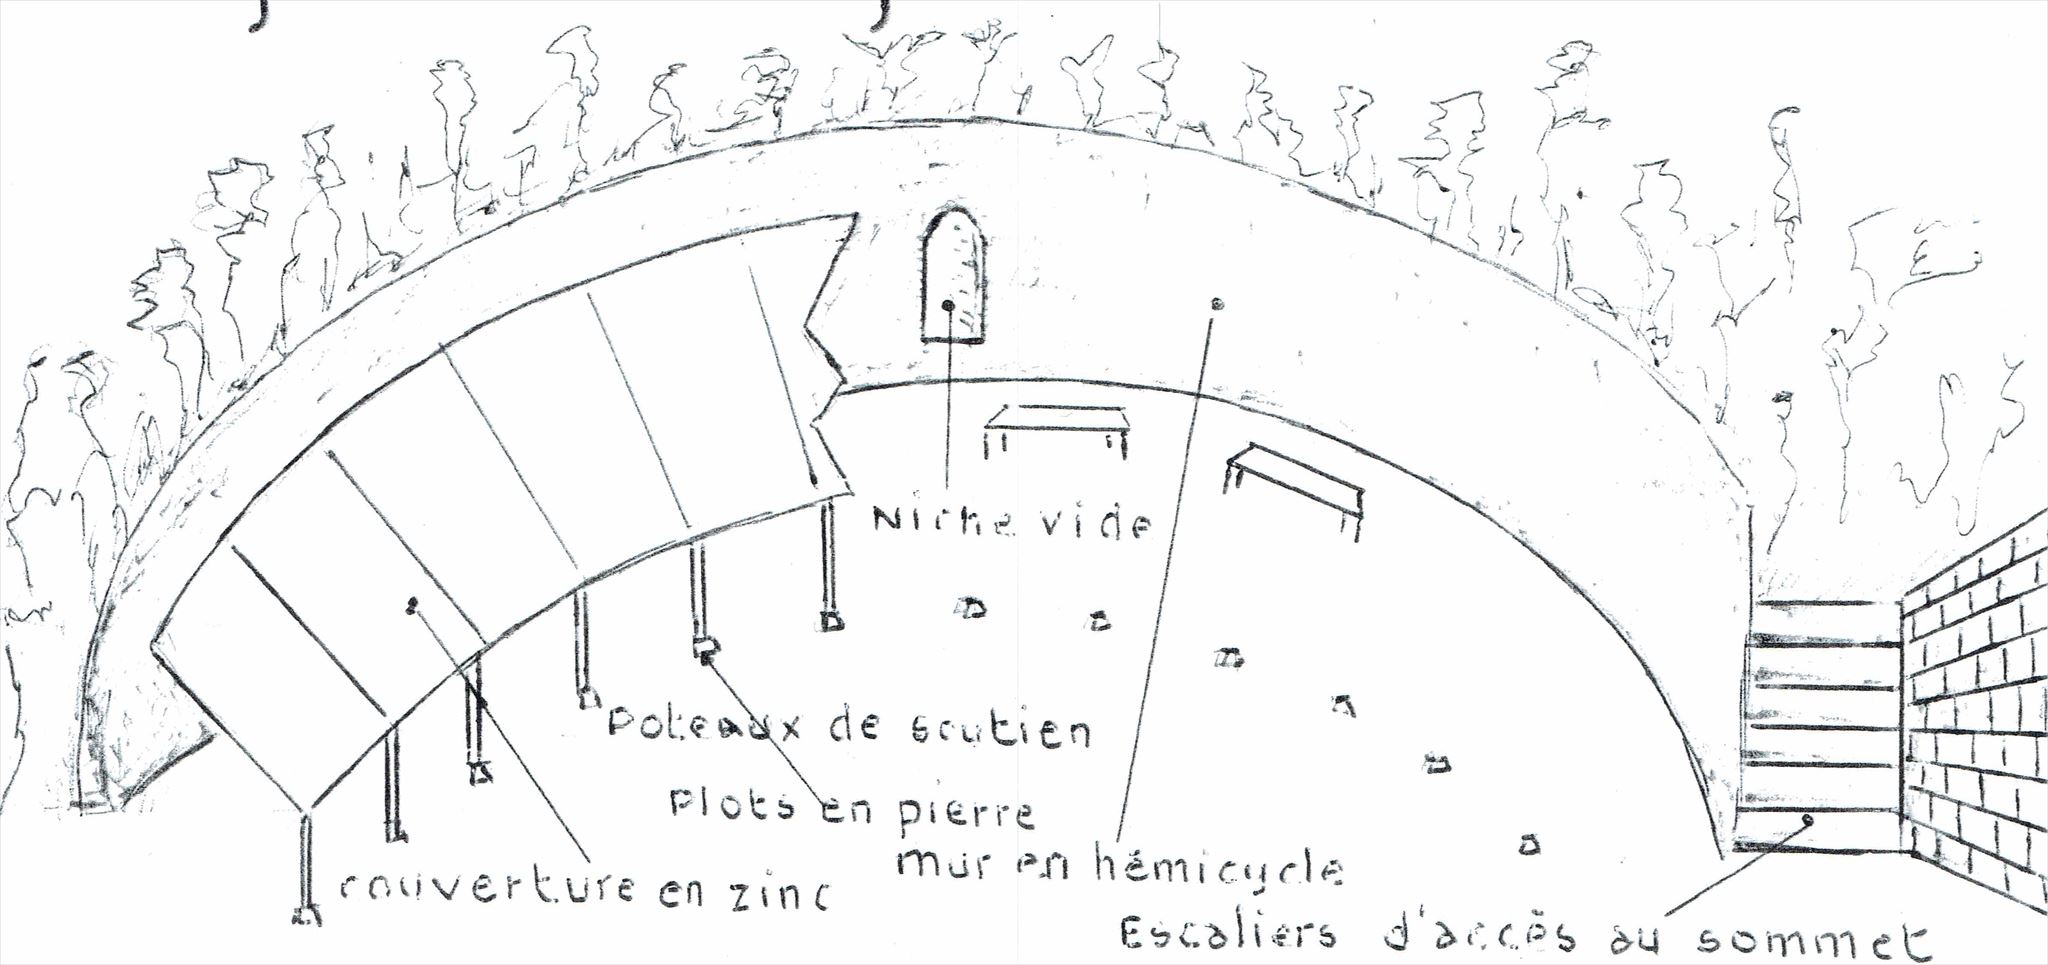 Niche vide
Poteaux de soutien
Plots en pierre
mur en hémicycle
couverture en zinc
Escaliers d'accès au sommet